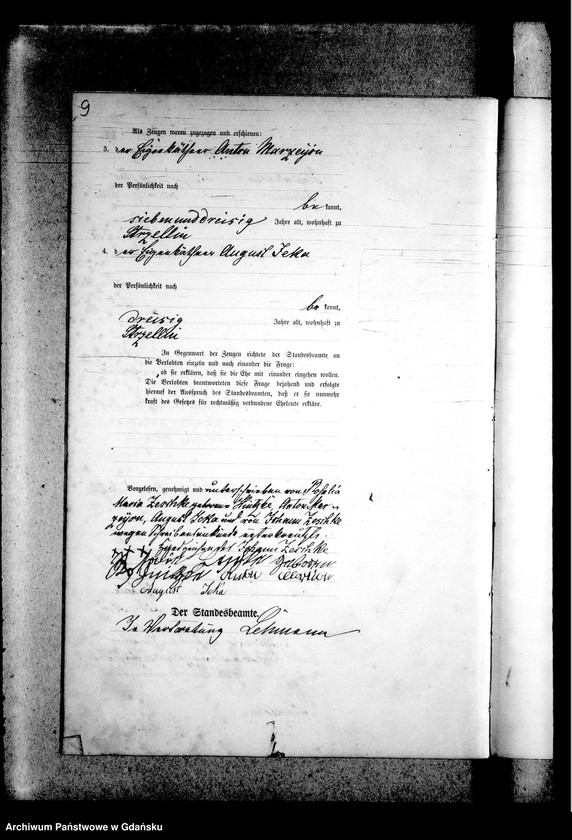 9
Als Zeugen waren zugezogen und erschienen:
3. der Eigenkäthner Anton Marzejon
der Persönlichkeit nach
be kannt,
siebenunddreisig Jahre alt, wohnhaft zu
Strzellin
4. der Eigenkäthner August Jeka
der Persönlichkeit nach
be kannt,
dreisig Jahre alt, wohnhaft zu
Strzellin
In Gegenwart der Zeugen richtete der Standesbeamte an
die Verlobten einzeln und nach einander die Frage:
ob sie erklären, daß sie die Ehe mit einander eingehen wollen.
Die Verlobten beantworteten diese Frage bejahend und erfolgte
hierauf der Ausspruch des Standesbeamten, daß er sie nunmehr
kraft des Gesetzes für rechtmäßig verbundene Eheleute erkläre.
Vorgelesen, genehmigt und unterschrieben von Rosalia
Maria Zeschke geborene Hintzke, Anton Mar-
zejon, August Jeka und von Johann Zeschke
wegen Schreibensunkunde unterkreuzt.
+++ Handzeichen des Johann Zeschke
geboren
Anton
August Jeka
Der Standesbeamte.
In Vertretung Lehmann
Archiwum Państwowe w Gdańsku